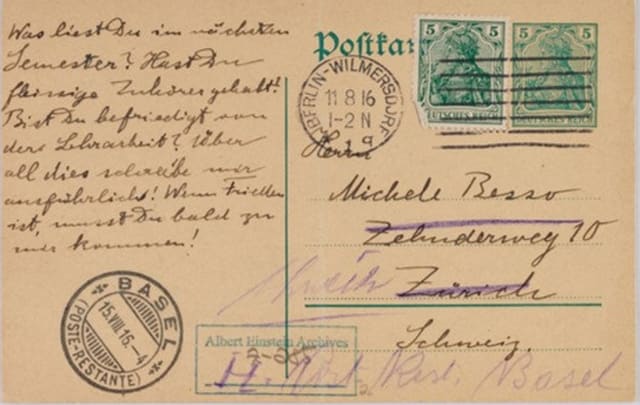 Was liest Du im nächsten
Semester? Hast Du
fleissige Zuhörer gehabt?
Bist Du befriedigt von
der Lehrarbeit? Über
all dies schreibe mir
ausführlich! Wenn Frieden
ist, musst Du bald zu
mir kommen!
Postkar
5 5
5 5
BERLIN-WILMERSDORF
11 8 16
1-2 N
DEUTSCHES REICH
Herrn
Michele Besso
Zehnderweg 10
Zürich
Schweiz.
BASEL
15.VIII.16.-4
(POSTE-RESTANTE)
Albert Einstein Archives
Basel